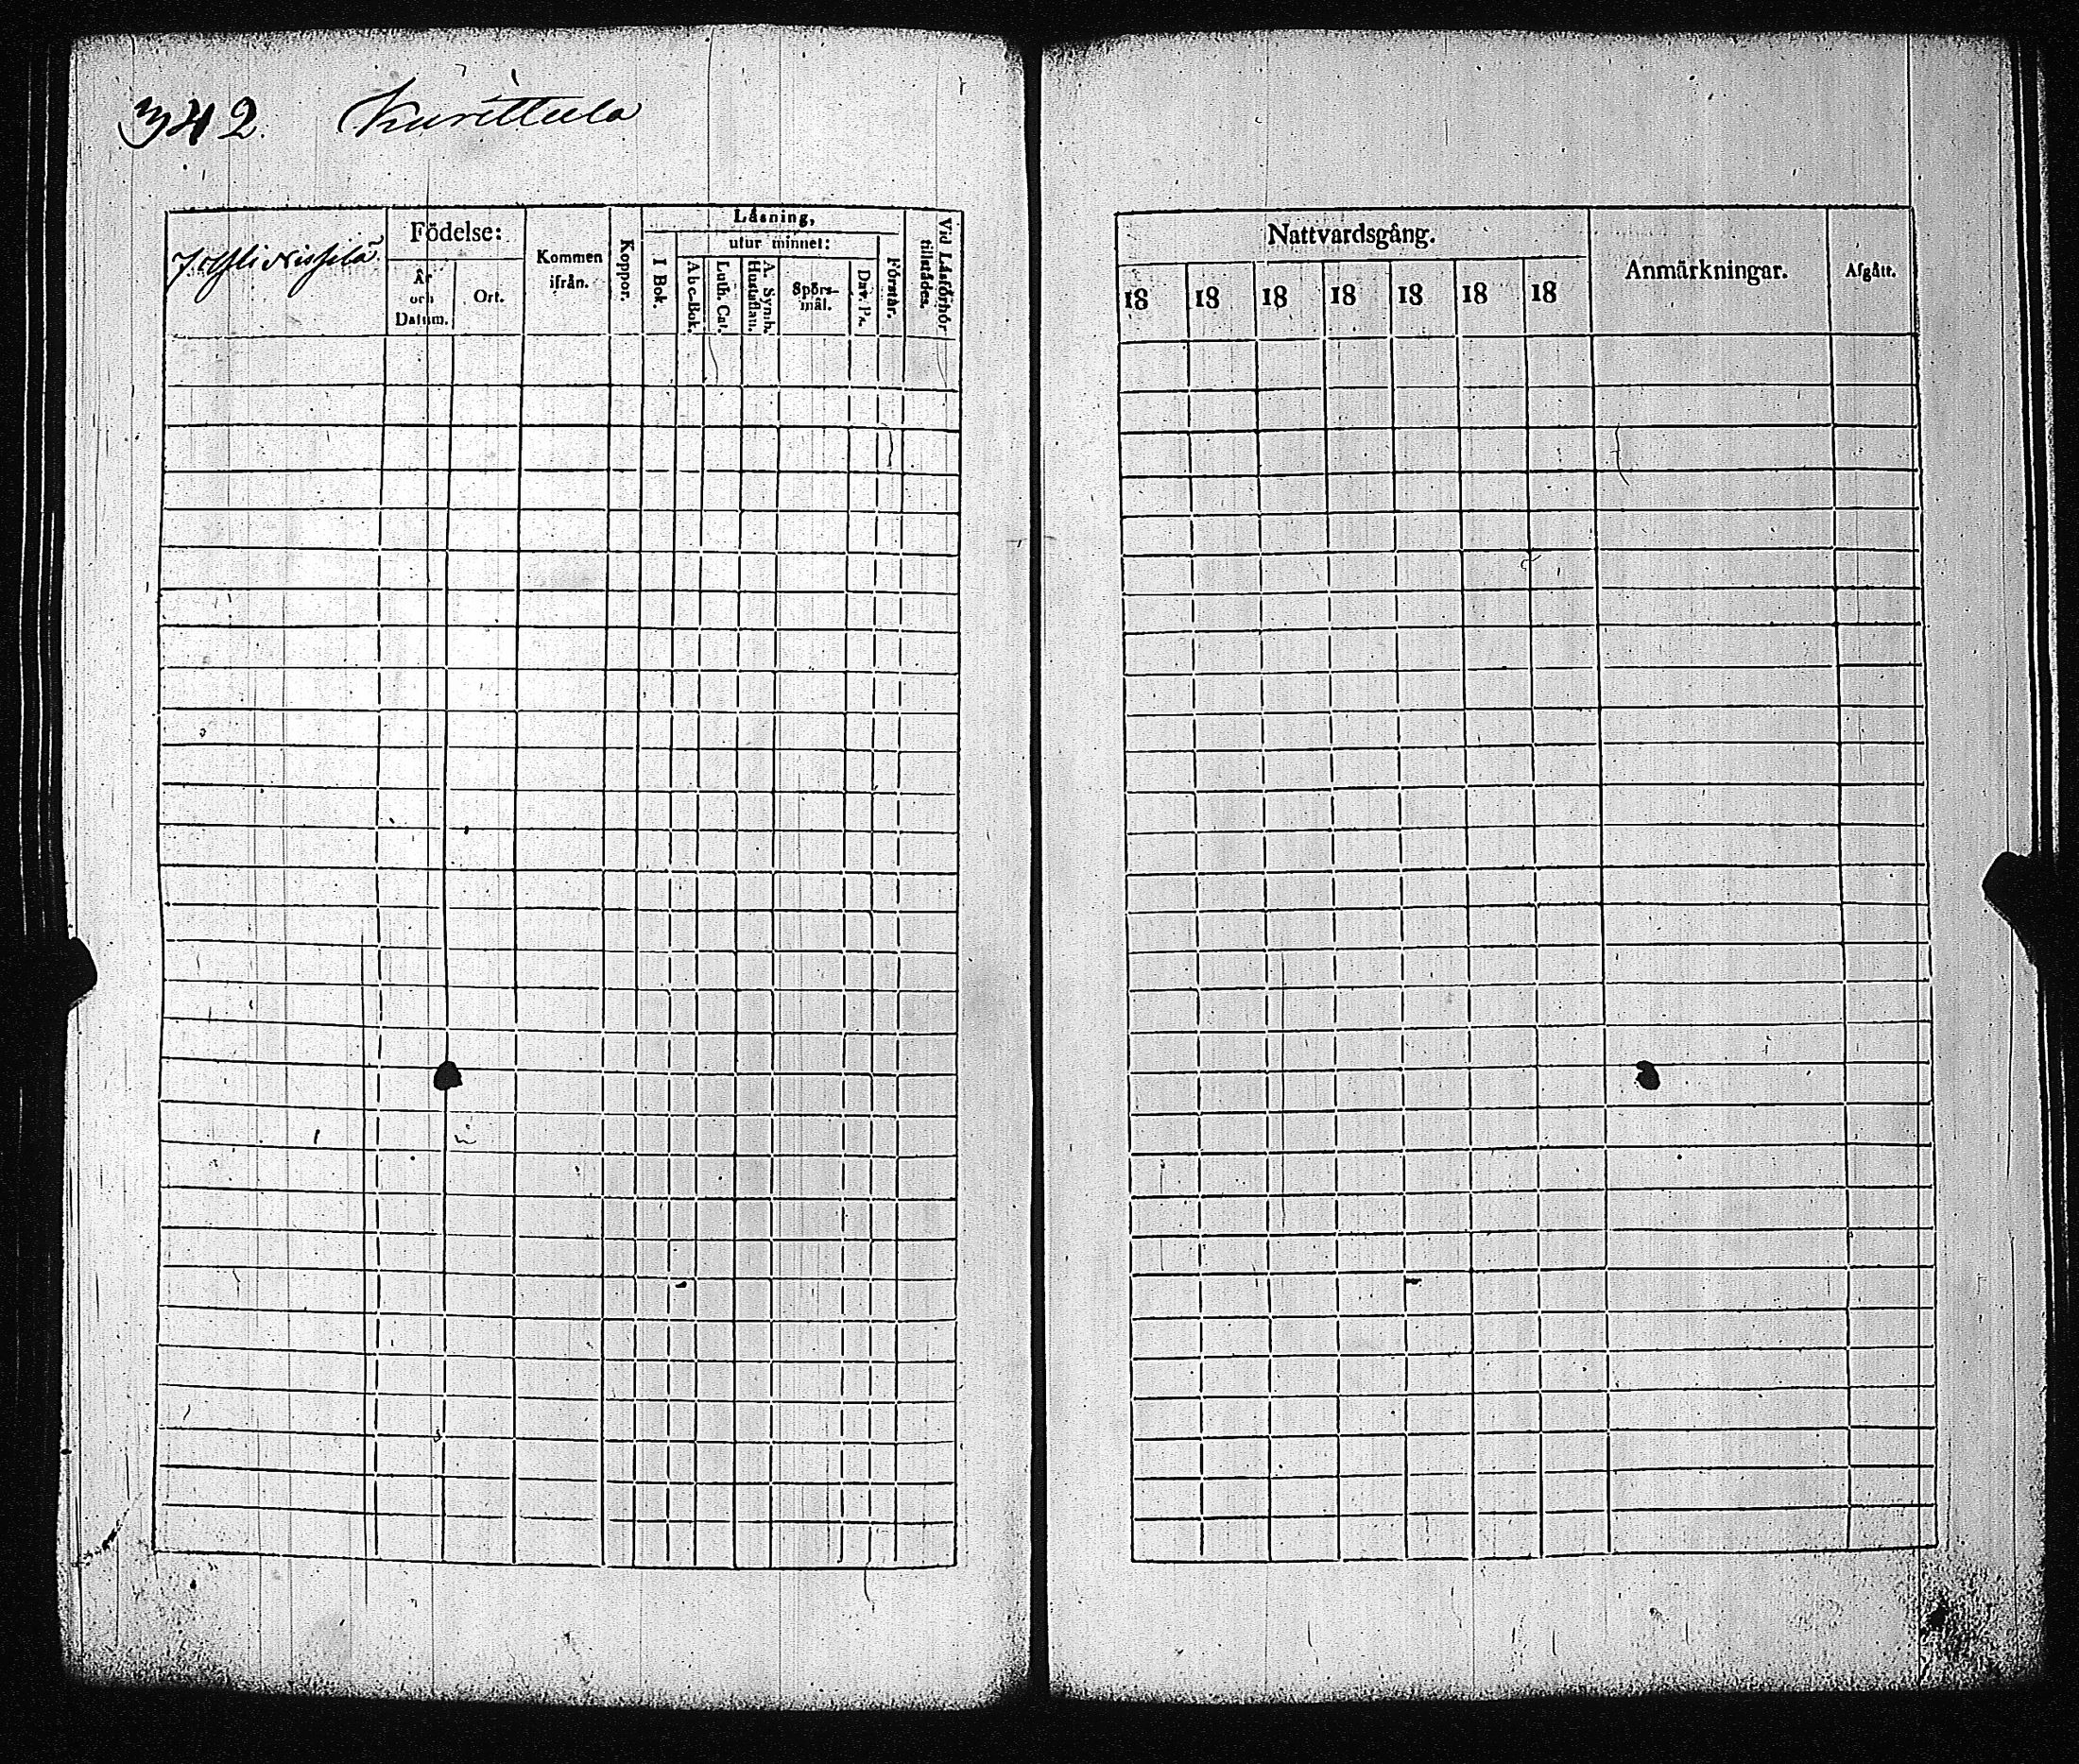 342. Kurittula
Nissilä
Födelse:
År och Datum.
Ort.
Kommen ifrån.
Koppor.
Läsning,
I Bok.
utur minnet:
Abc-Bok.
Luth. Cat.
A. Symb. Hustaflan.
Spörs-mål.
Dav. Ps.
Förstår.
Vid Läsförhör tillstädes.
Nattvardsgång.
18 18 18 18 18 18 18
Anmärkningar.
Afgått.